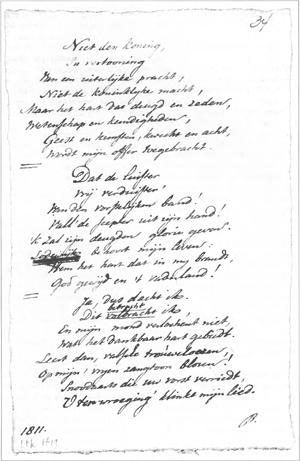 34
Niet den koning,
In vertooning
Van een uiterlijke pracht,
Niet de koninklijke macht,
Maar het hart dat deugd en zeden,
Wetenschap en kundigheden,
Geest en kunsten, kweekt en acht,
Wordt mijn offer toegebracht.
Dat de luister
Vrij verduister'
Van den vorstelijken band!
Vall' de scepter uit zijn hand!
'k Zal zijn deugden glorie geven.
behoort mijn leven:
Hem het hart dat in mij brandt,
God gewijd en 't vaderland!
Ja, dus dacht ik.
betracht
Dit volbracht ik
En mijn mond verloochent niet,
Wat het dankbaar hart gebiedt.
Leert dan, valsche trouweloozen!
Op mijn' vrijen zangtoon bloozen!
Snoodaarts die uw vorst verriedt,
U ter wroeging klinkt mijn lied.
B.
1811.